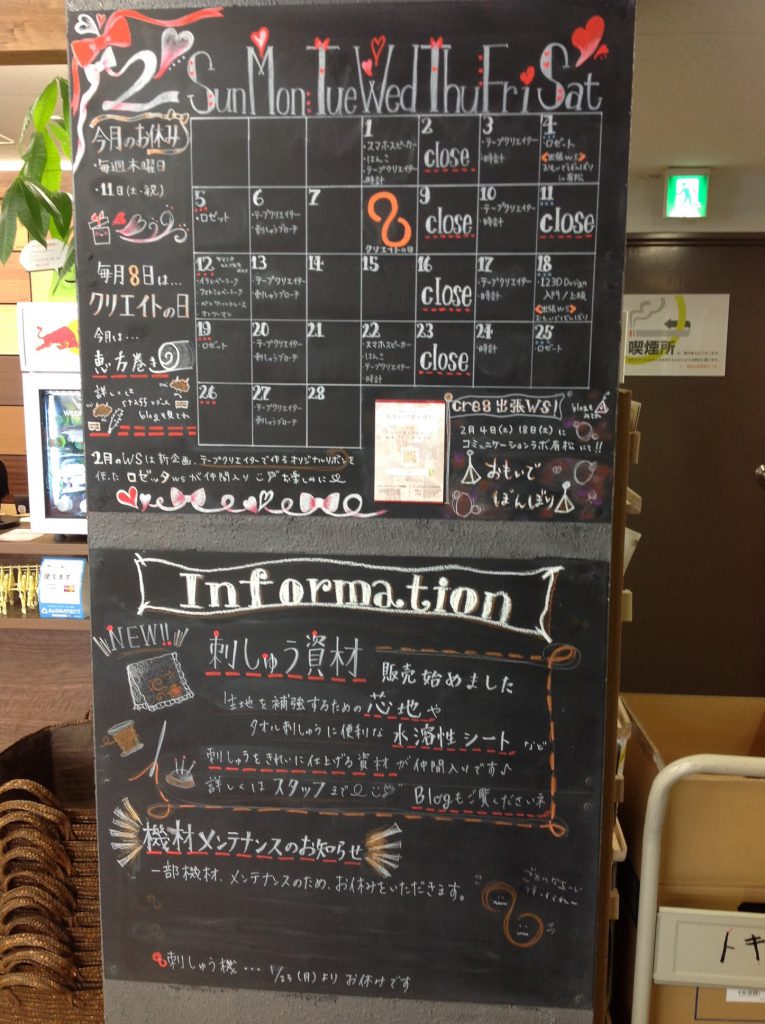 2 Sun Mon Tue Wed Thu Fri Sat
今月のお休み
・毎週木曜日
・11日(土・祝)
毎月8日は…
クリエイトの日
今月は…
恵方巻き
詳しくは
staff
blogも見てね
1
・スマホスピーカー
・はんこ
・テープクリエイター
・時計
2
close
3
・テープクリエイター
・時計
4
・ロゼット
《出張WS》
おもいでぼんぼり
in 有松
5
・ロゼット
6
・テープクリエイター
・刺しゅうブローチ
7
8
クリエイトの日
9
close
10
・テープクリエイター
・時計
11
close
12
13
・テープクリエイター
・刺しゅうブローチ
14
15
16
close
17
・テープクリエイター
・時計
18
・123D Design
入門/上級
《出張WS》
おもいでぼんぼり
19
・ロゼット
20
・テープクリエイター
・刺しゅうブローチ
21
22
・スマホスピーカー
・はんこ
・テープクリエイター
・時計
23
close
24
・時計
25
・ロゼット
26
27
・テープクリエイター
・刺しゅうブローチ
28
2月のWSは新企画、テープクリエイターで作るオリジナルリボンを
使った ロゼッタWSが仲間入り お楽しみに
cre8 出張WS!
2月4日(土) 18日(土)に
コミュニケーションラボ有松にて!!
おもいで
ぼんぼり
Information
NEW!!
刺しゅう資材 販売始めました
生地を補強するための 芯地や
タオル刺しゅうに便利な 水溶性シート など
刺しゅうをきれいに仕上げる資材 が仲間入りです♪
詳しくは スタッフまで Blogもご覧くださいネ
機材メンテナンスのお知らせ
一部機材、メンテナンスのため、お休みをいただきます。
刺しゅう機… 1/23(月)より お休みです
喫煙所
使えます
トキ